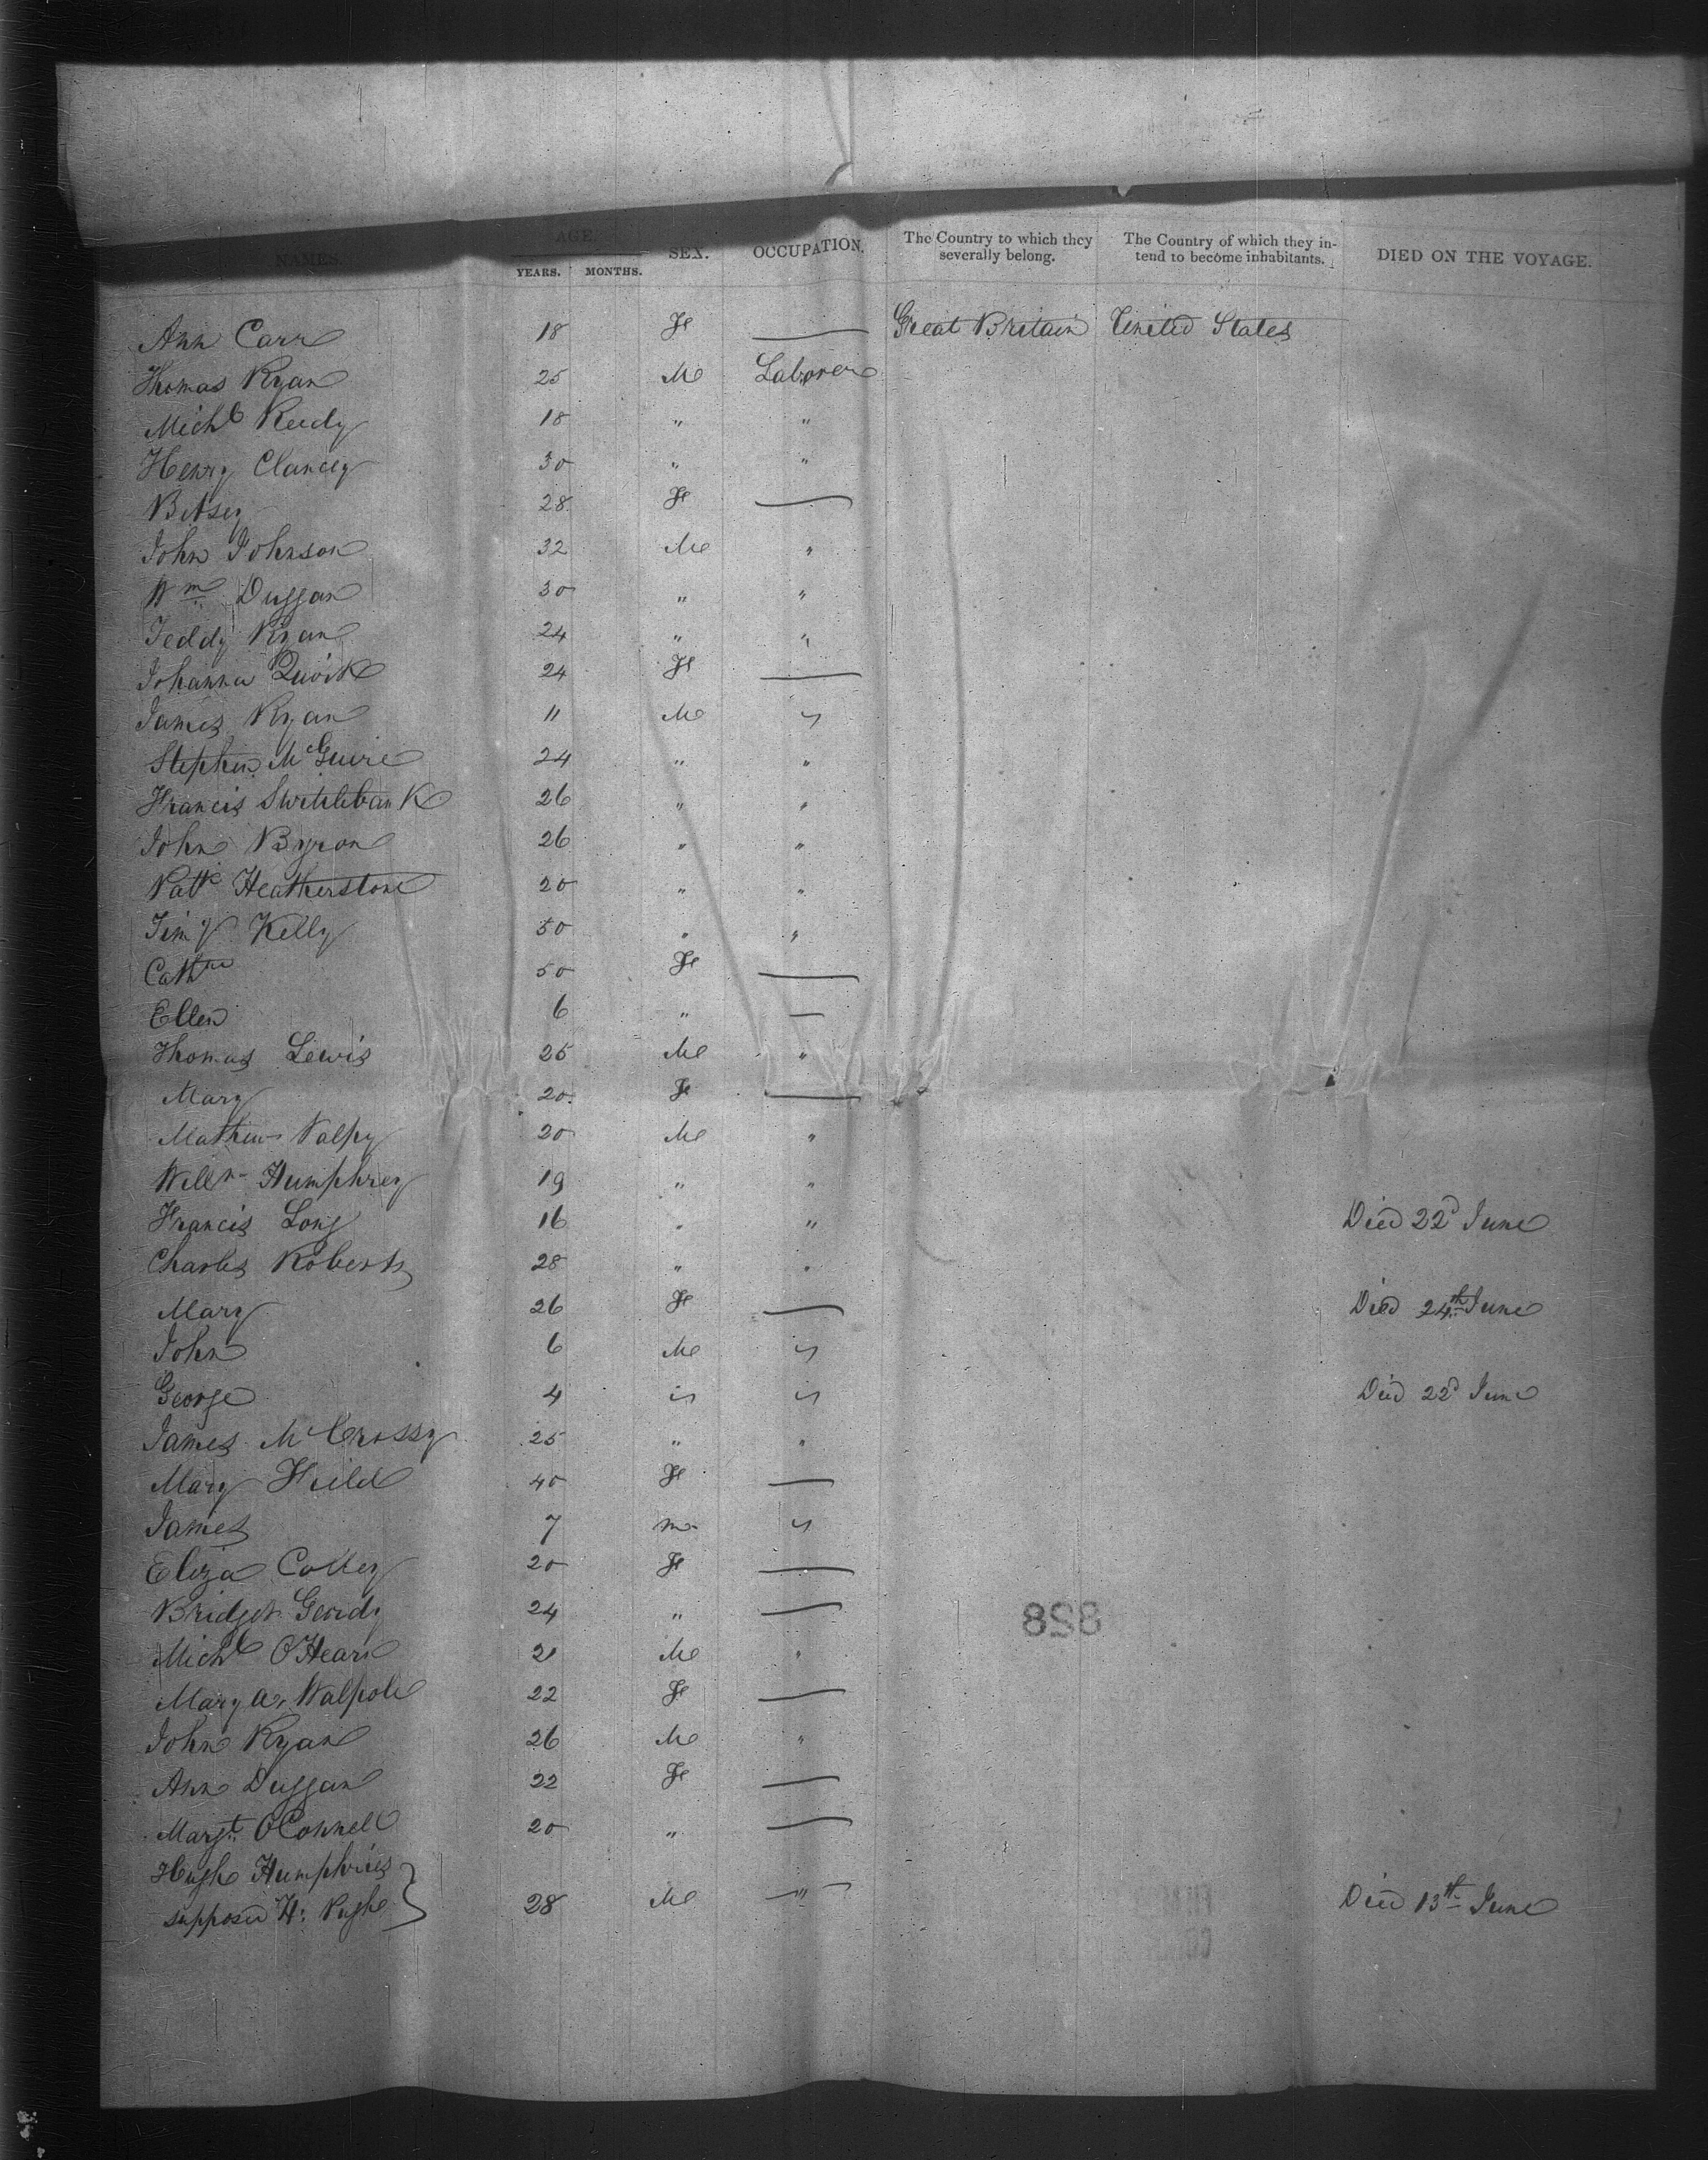 AGE.
NAMES. YEARS. MONTHS. SEX. OCCUPATION. The Country to which they severally belong. The Country of which they intend to become inhabitants. DIED ON THE VOYAGE.
Ann Carr 18 Fe — Great Britain United States
Thomas Ryan 25 Me Laborer
Michl Reedy 18 " "
Henry Clancey 30 " "
Betsey 28 Fe —
John Johnson 32 Me "
Wm Duggan 30 " "
Teddy Ryan 24 " "
Johanna Quirk 24 Fe —
James Ryan 11 Me "
Stephen McGuire 24 " "
Francis 26 " "
John Byron 26 " "
Patk Heatherstone 20 " "
Timy Kelly 50 " "
Cathne 50 Fe —
Ellen 6 " —
Thomas Lewis 25 Me "
Mary 20 Fe —
Mathew Valpy 20 Me "
Willm Humphrey 19 " "
Francis Long 16 " " Died 22d June
Charles Roberts 28 " "
Mary 26 Fe — Died 24th June
John 6 Me "
George 4 " " Died 22d June
James McCrossy 25 " "
Mary Field 40 Fe —
James 7 m "
Eliza 20 Fe —
Bridget 24 " —
Michl O'Hearn 21 Me "
Mary A. Walpole 22 Fe —
John Ryan 26 Me "
Ann Duggan 22 Fe —
Margt O'Connell 20 " —
Hugh Humphries
supposed H. Pughe } 28 Me " Died 13th June
828